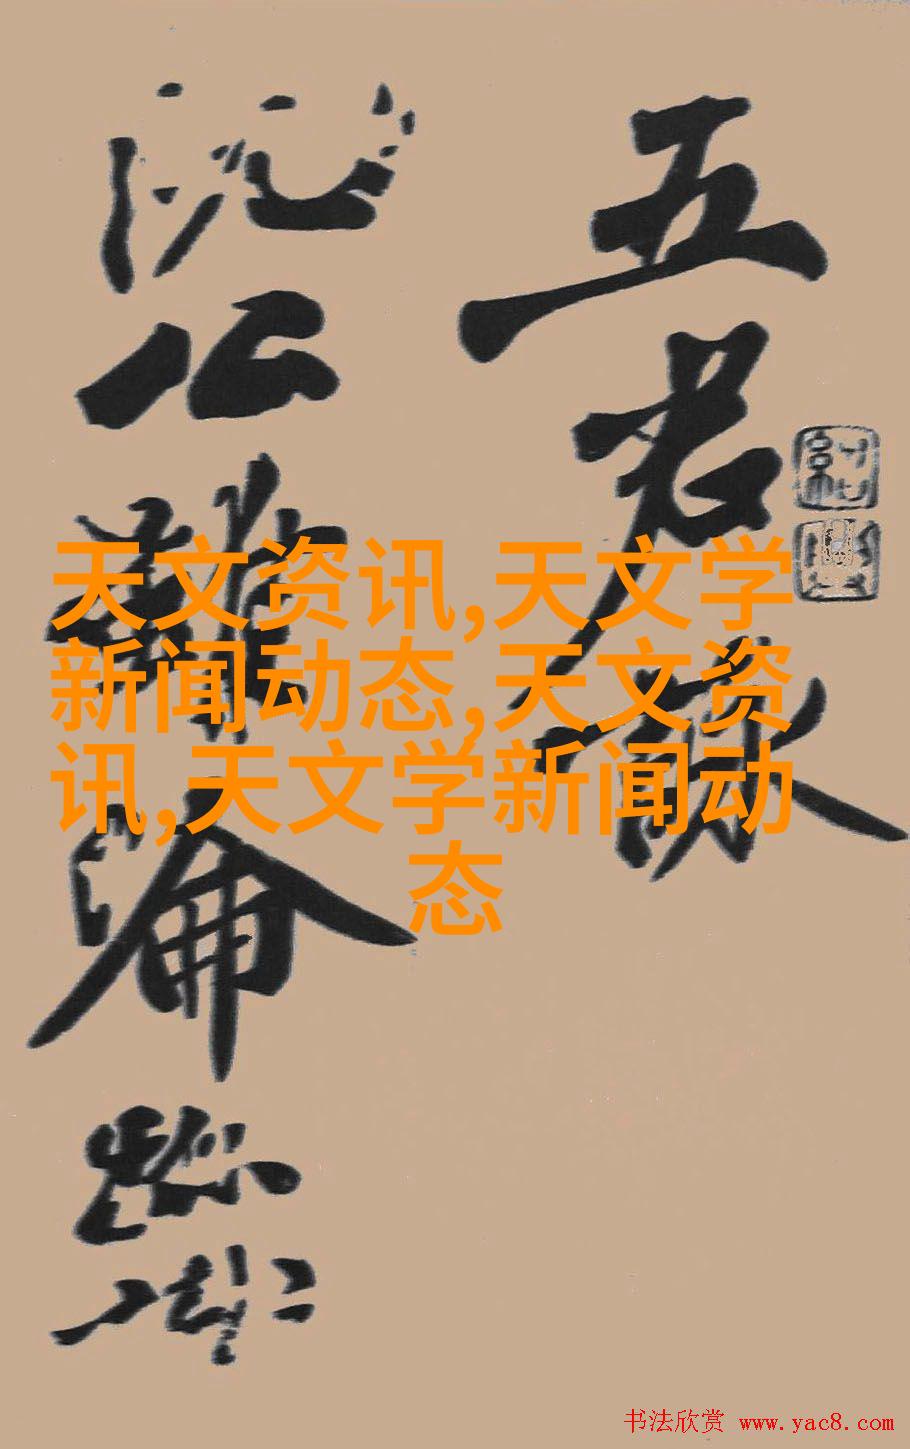 五君詠
阮公雖淪跡
天文资讯,天文学
新闻动态,天文资
讯,天文学新闻动
态
书法欣赏 www.yac8.com